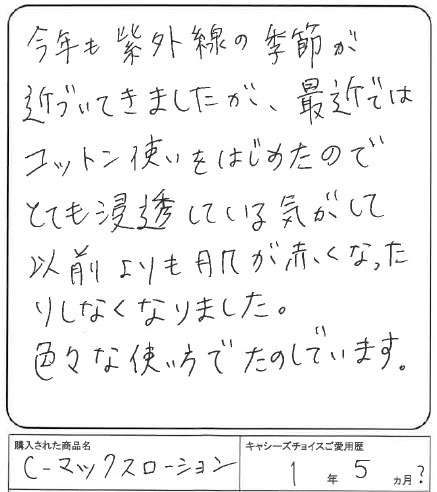 今年も紫外線の季節が
近づいてきましたが、最近では
コットン使いをはじめたので
とても浸透している気がして
以前よりも肌が赤くなった
りしなくなりました。
色々な使い方でたのしでいます。
購入された商品名
C-マックスローション
キャシーズチョイスご愛用歴
1年5ヵ月?